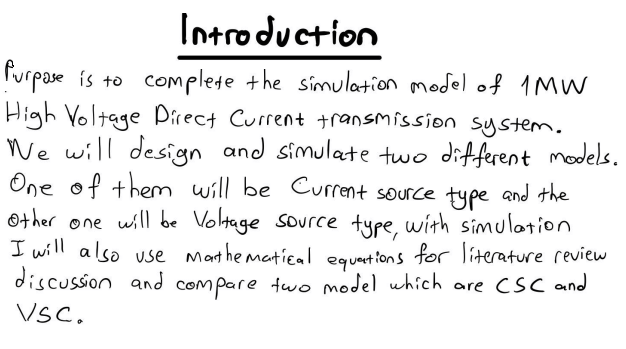 Introduction
Purpose is to complete the simulation model of 1MW
High Voltage Direct Current transmission system.
We will design and simulate two different models.
One of them will be Current source type and the
other one will be Voltage source type, with simulation
I will also use mathematical equations for literature review
discussion and compare two model which are CSC and
VSC.